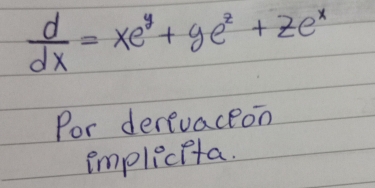 d/dx = xe^y + ye^z + ze^x
Por derivación
implicita.